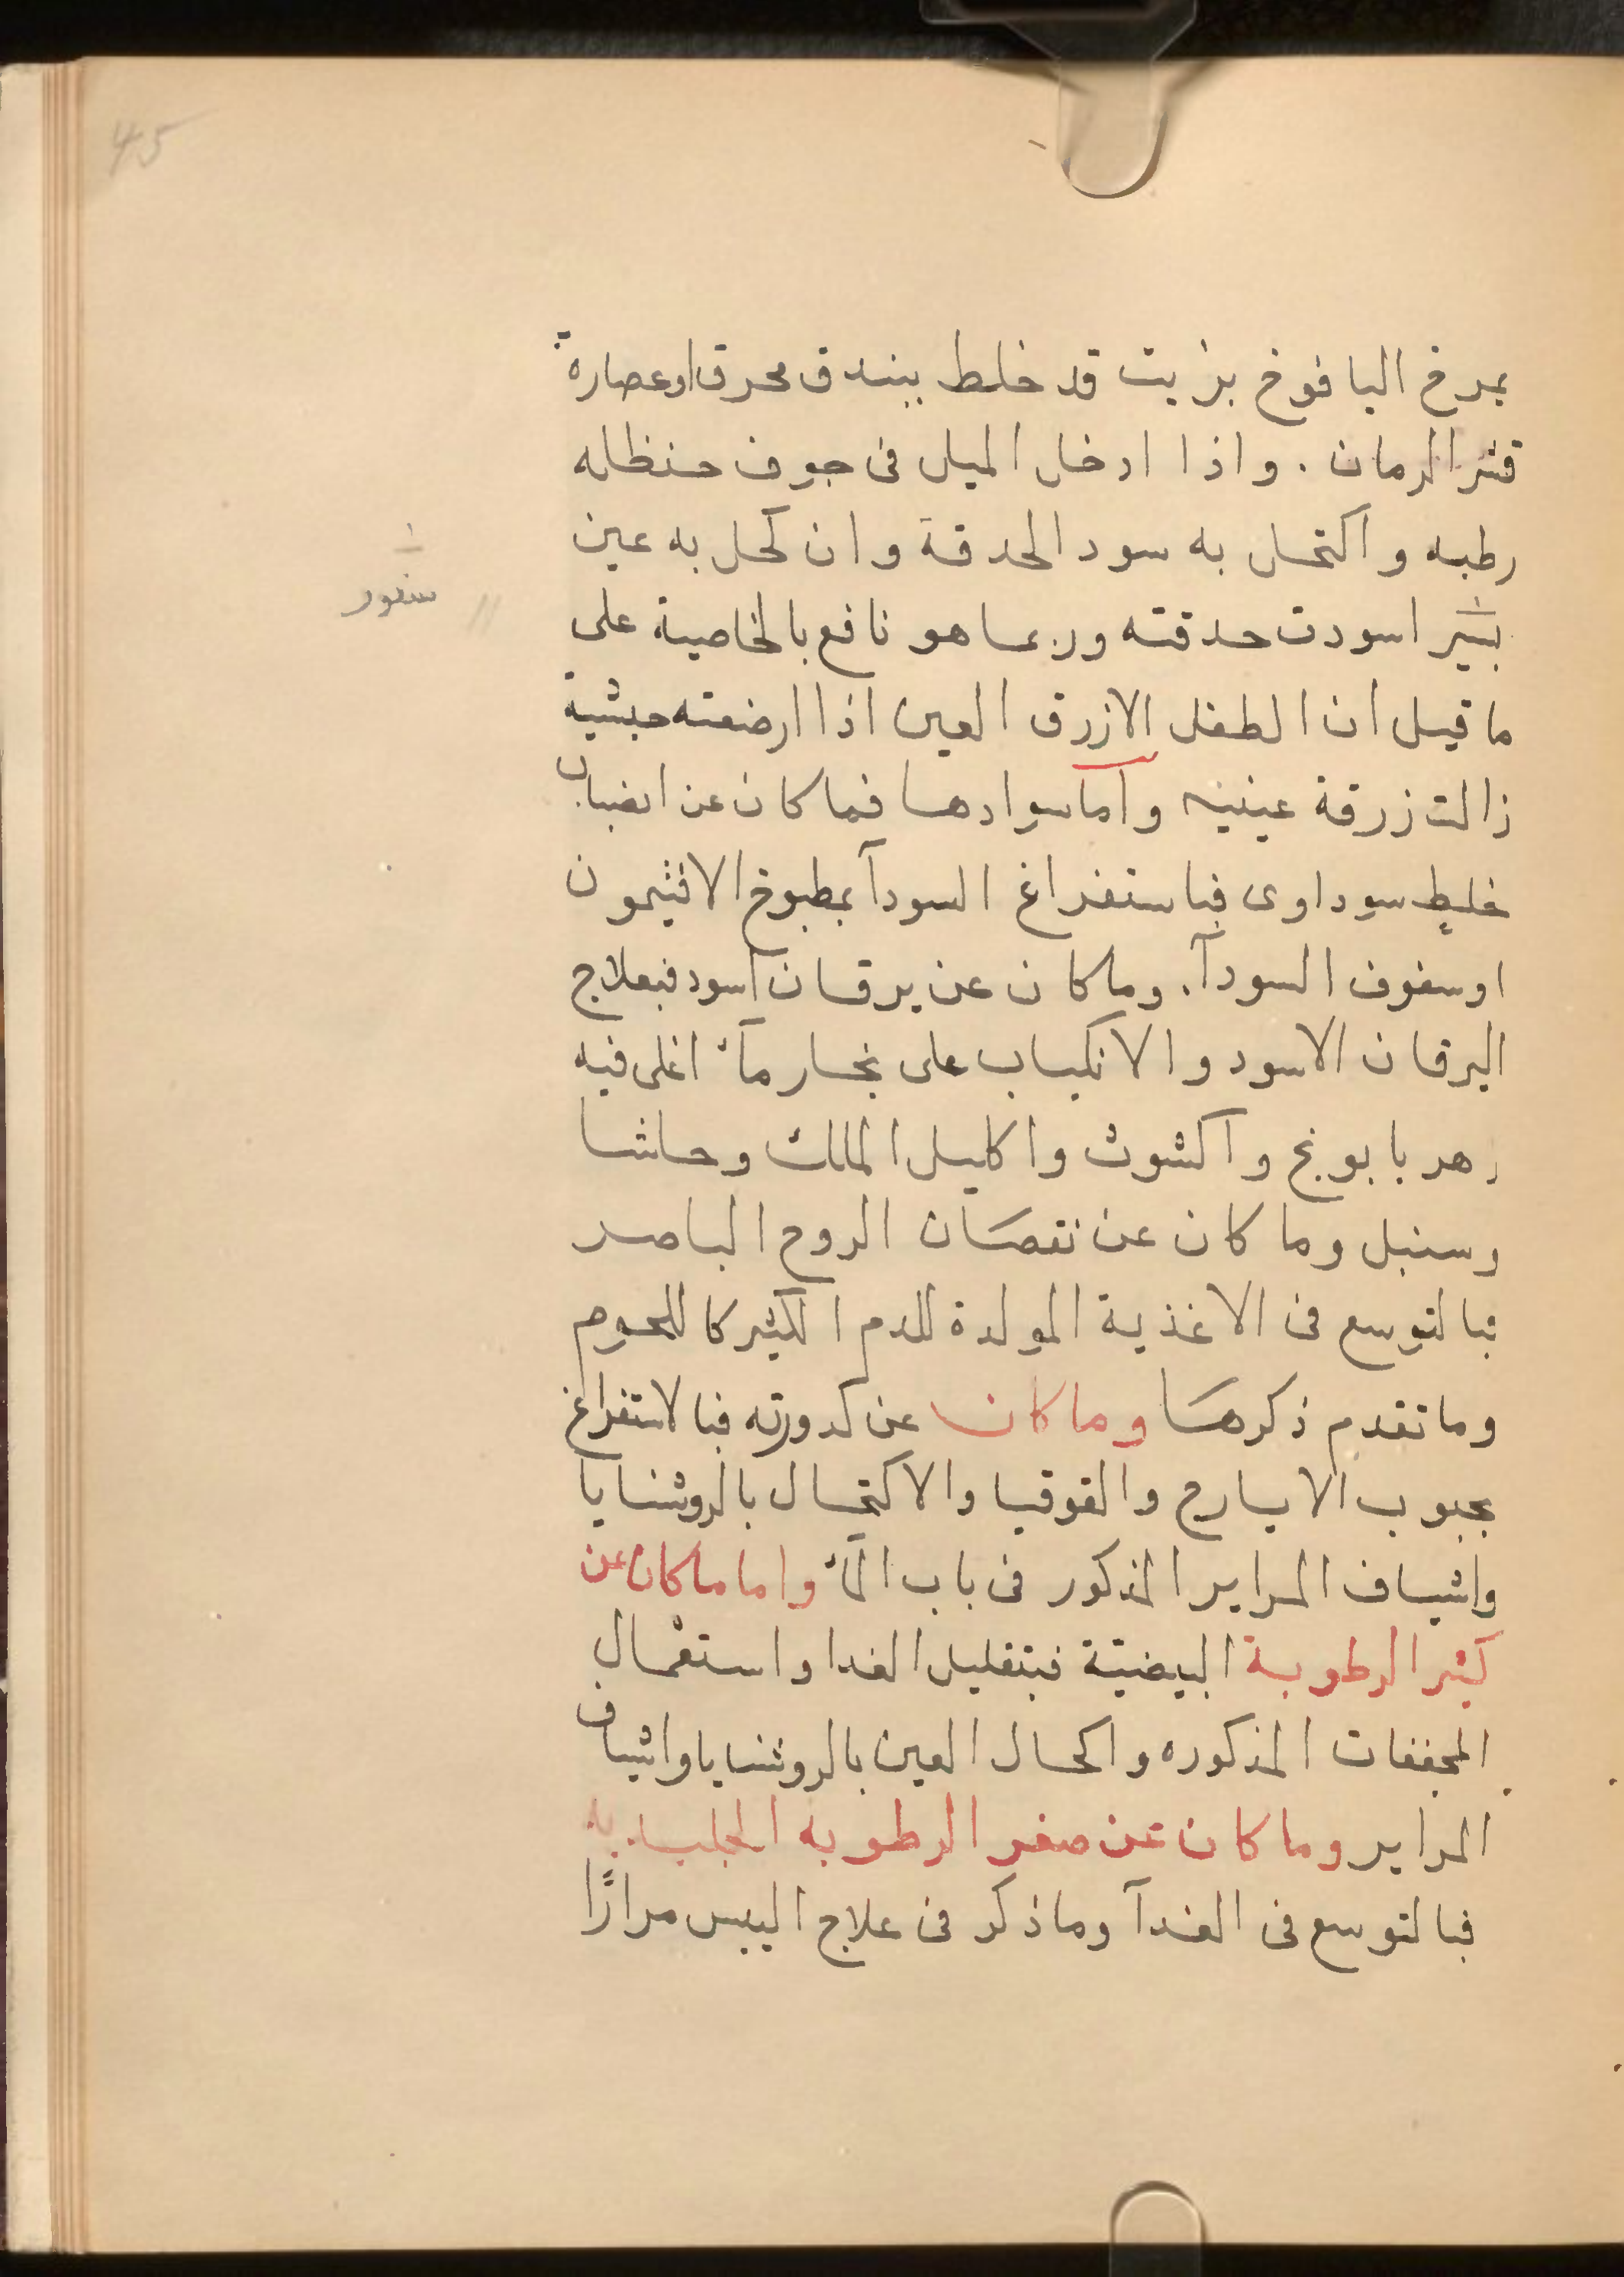 45
يمرخ اليافوخ بزيت قد خلط ببندق محرق اوعصارة
قشر الرمان . واذا ادخل الميل فى جوف حنظله
رطبه واكتحل به سود الحدقة وان كحل به عين
اسودت حدقته وربما هو نافع بالخاصية على
سنور
ما قيل ان الطفل الازرق العين اذا ارضعته حبشية
زالت زرقة عينيه واما سوادها فما كان عن انصباب
خلط سوداوى فباستفراغ السودآ بمطبوخ الافثيمون
اوسفوف السودآ . وما كان عن يرقان اسود فبعلاج
اليرقان الاسود والانكباب على بخار مآء اغلى فيه
زهر بابونج واكشوث واكليل الملك وحاشا
وسنبل وما كان عن نقصان الروح الباصر
فبالتوسع فى الاغذية المولدة للدم الكثير كاللحوم
وما تقدم ذكرها وما كان عن كدورته فبالاستفراغ
بحبوب الايارج والقوقيا والاكتحال بالروشنايا
واشياف المراير المذكور فى باب المآء واما ما كان عن
كثير الرطوبة البيضيّة فبتقليل الغدا واستعمال
المجففات المذكوره واكحال العين بالروشنايا واشياف
المراير وما كان عن صغر الرطوبه الجليديه
فبالتوسع فى الغدآ وما ذكر فى علاج اليبس مرارًا